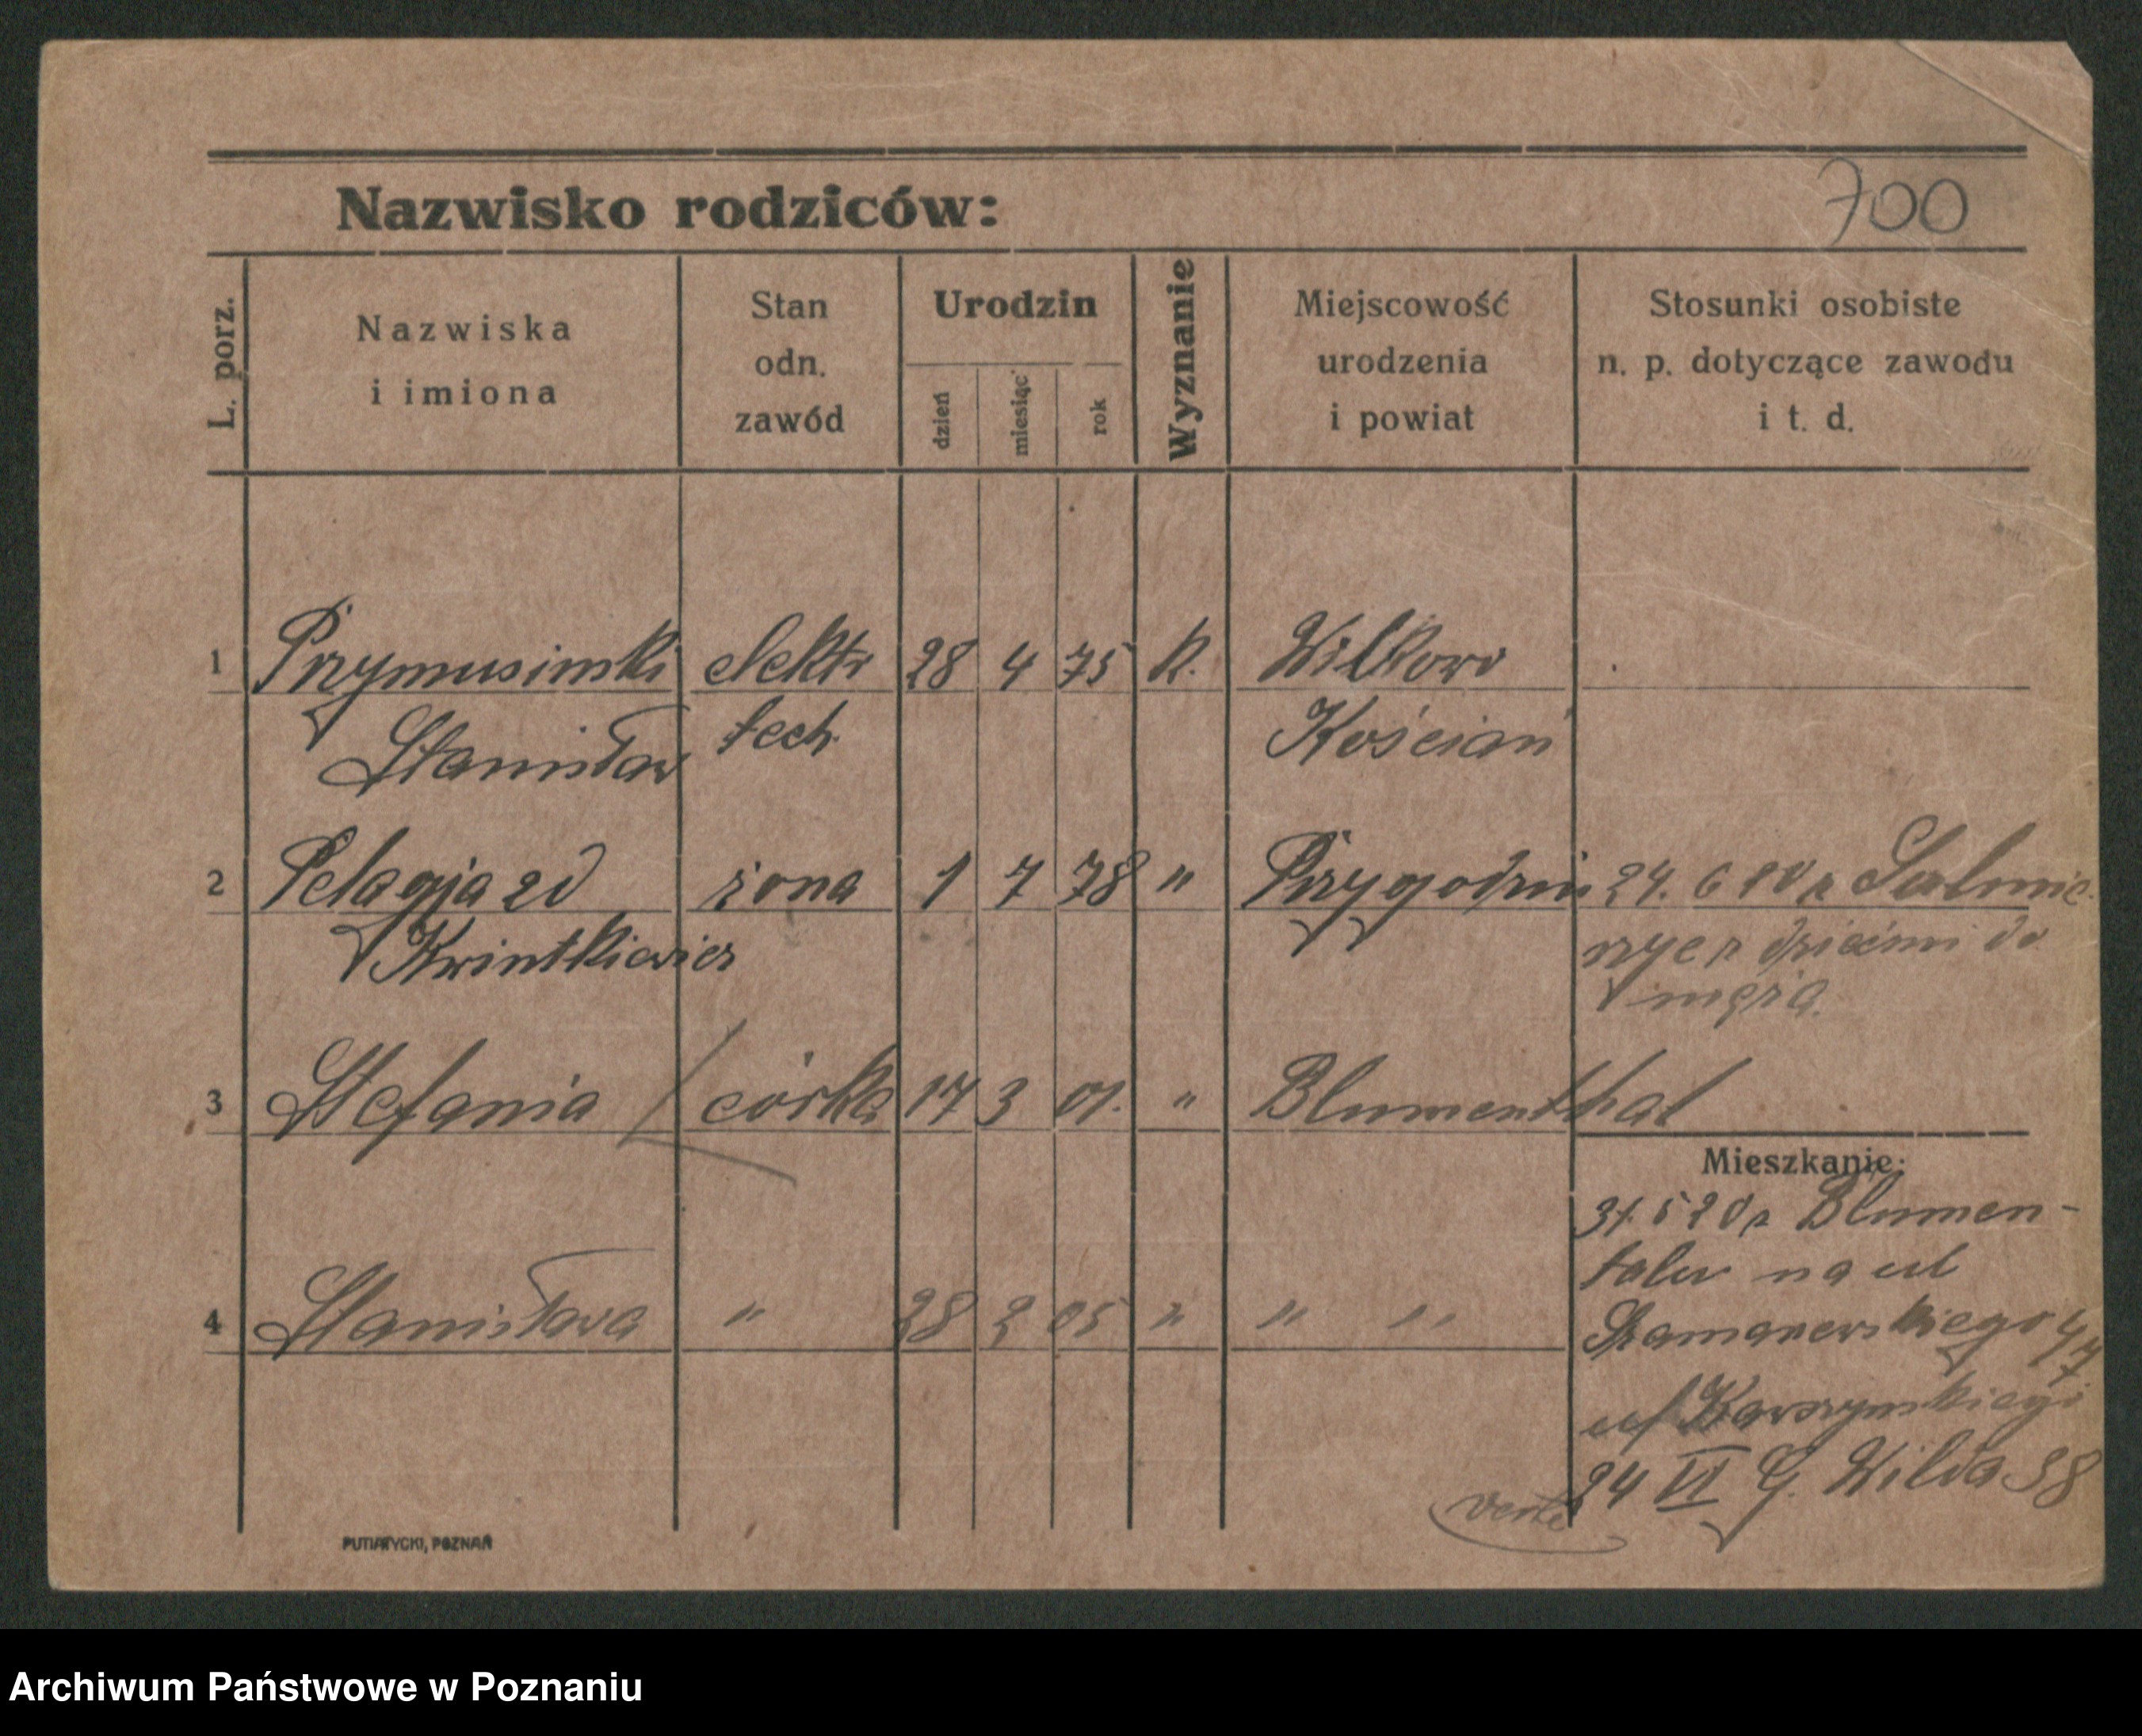 700
Nazwisko rodziców:
L. porz.
Nazwiska
i imiona
Stan
odn.
zawód
Urodzin
dzień
miesiąc
rok
Wyznanie
Miejscowość
urodzenia
i powiat
Stosunki osobiste
n. p. dotyczące zawodu
i t. d.
1 Przymusinski elektr 28 4 75 k. Wilkowo
Stanisław tech. Kościan
2 Pelagja zd żona 1 7 78 " Przygodzin 24. 6 20 z
Kwintkiewicz
dziećmi do
męża.
3 Stefania córka 17 3 01. " Blumenthal
Mieszkanie:
31. 5 20 z Blumen-
talu na ul
4 Stanisława " 28 2 05 " " "
47
ul
24 VI G. Wilda 38
verte
PUTIATYCKI, POZNAŃ
Archiwum Państwowe w Poznaniu